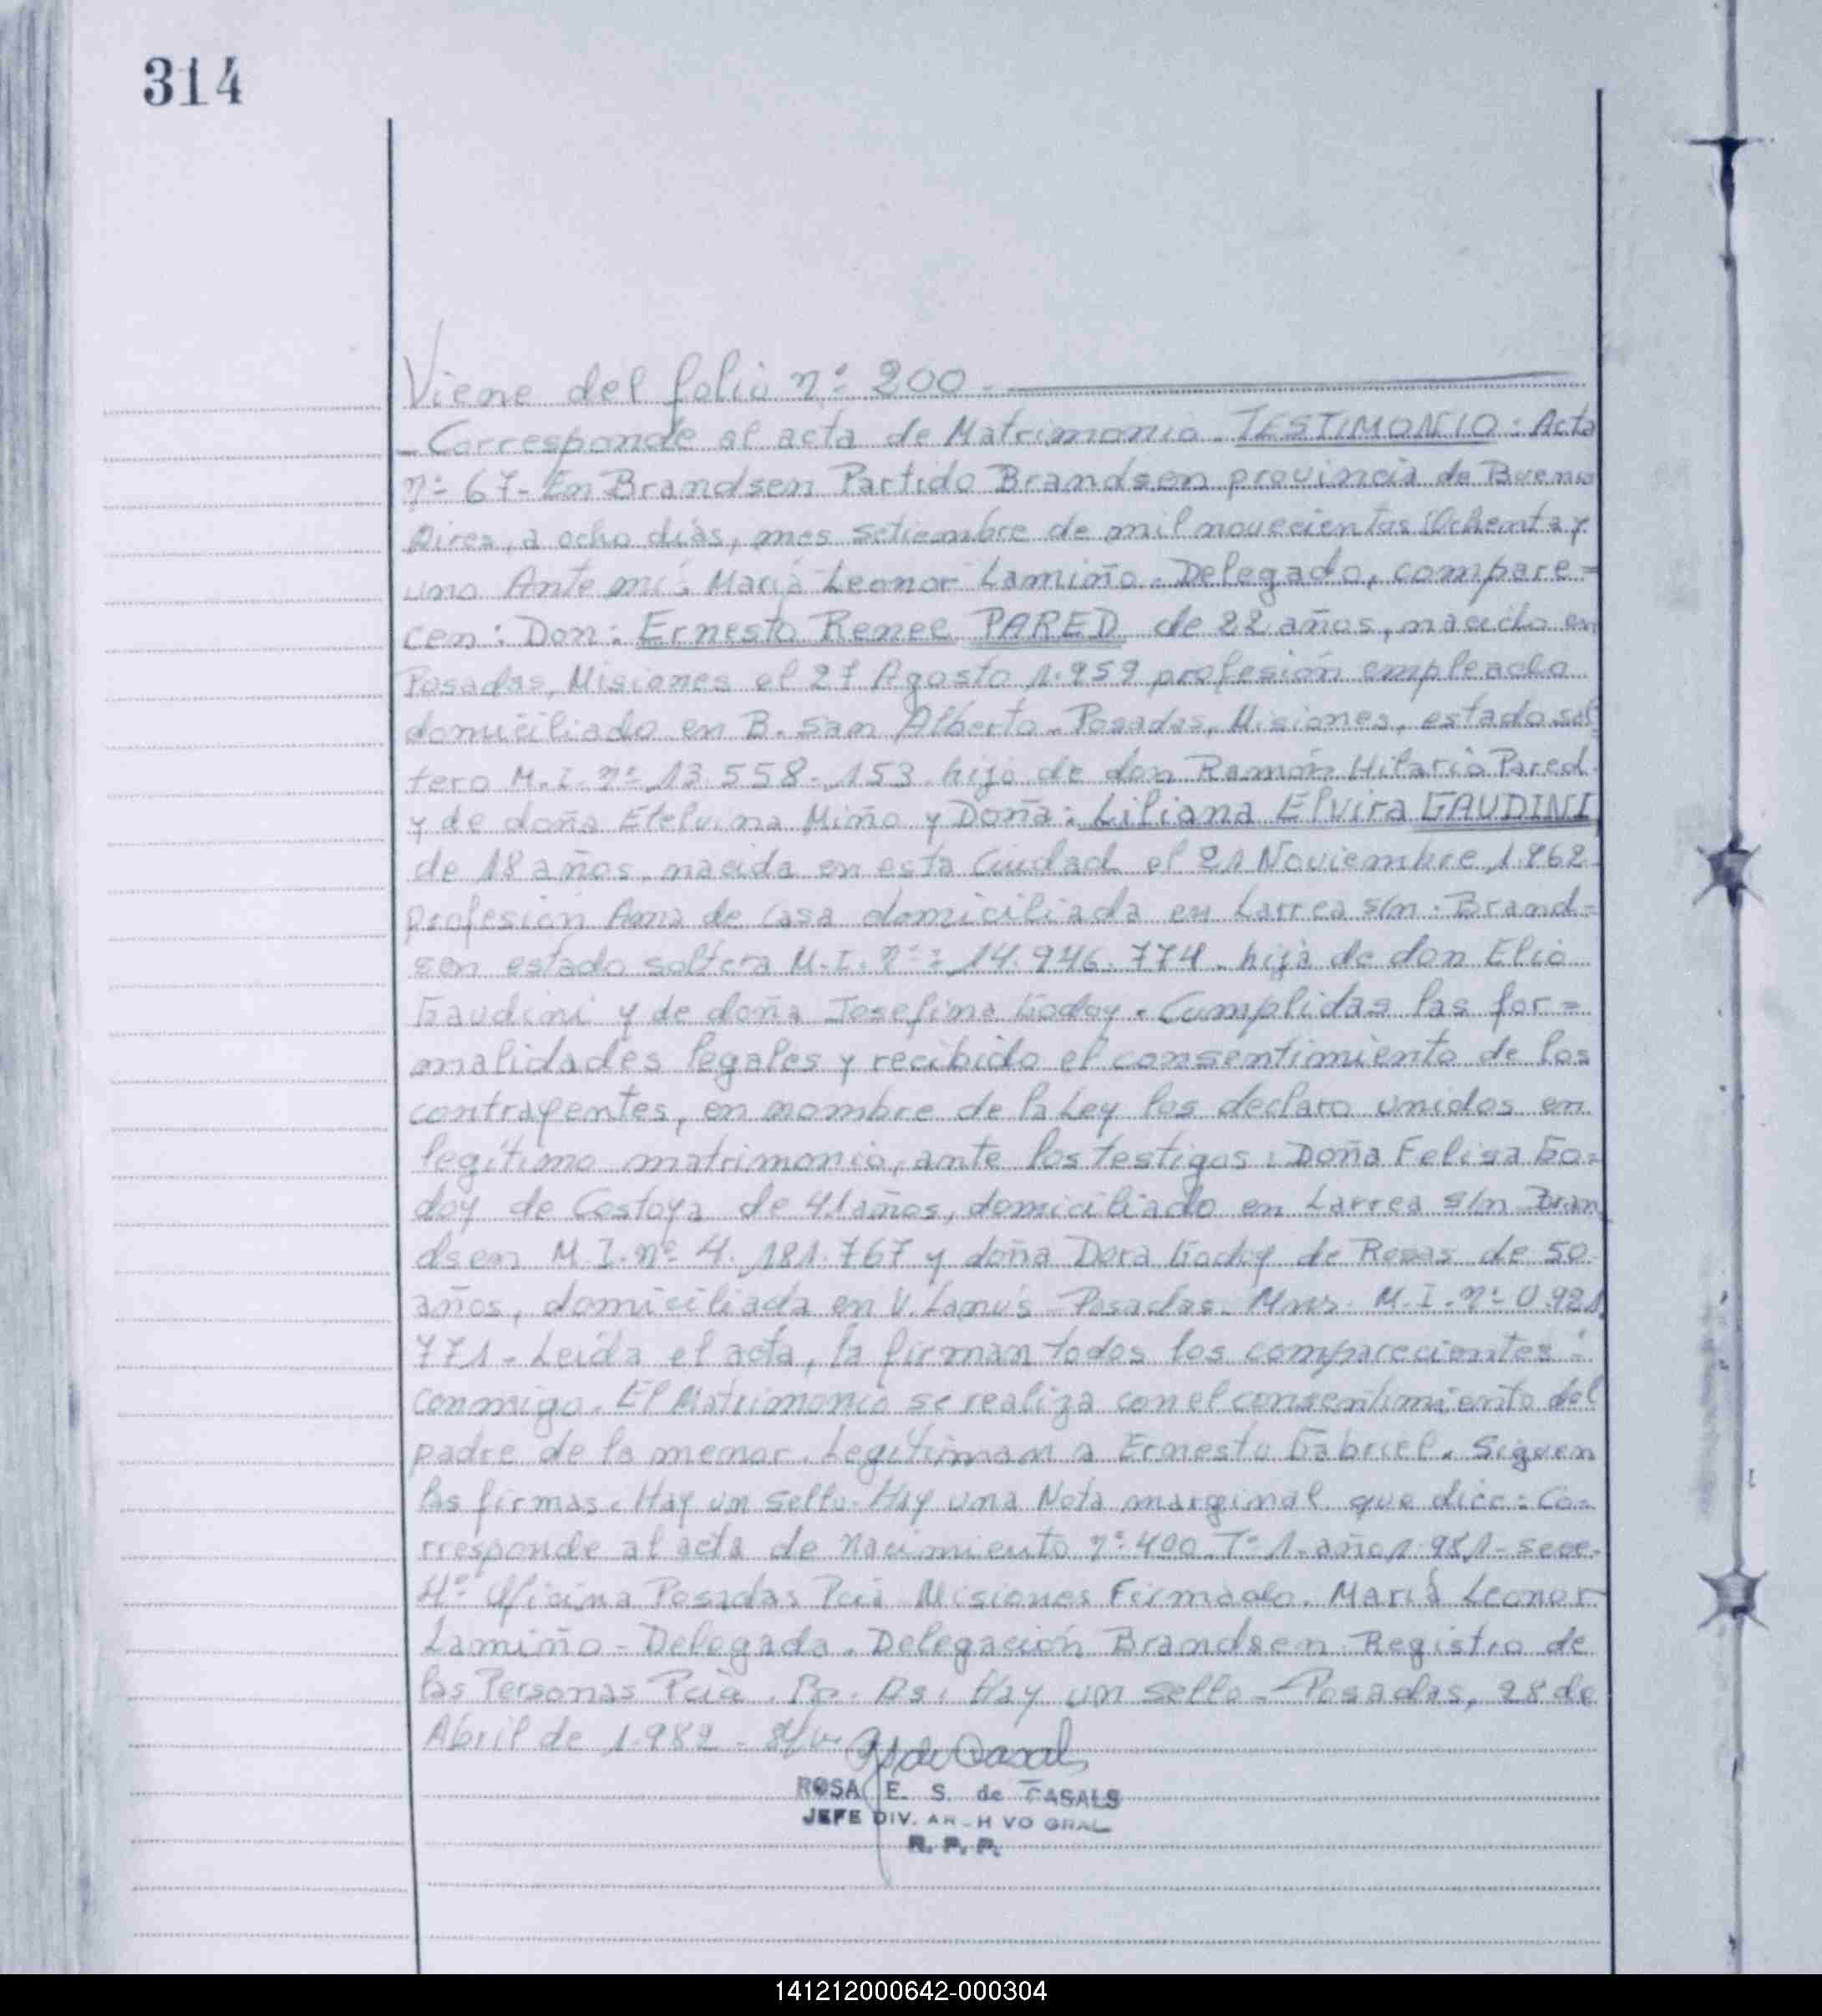 314
Viene del folio nº 200.
- Corresponde al acta de Matrimonio. TESTIMONIO: Acta
nº 67- En Brandsen Partido Brandsen provincia de Buenos
Aires, a ocho días, mes setiembre de mil novecientos Ochenta y
uno Ante mí: María Leonor Lamiño. Delegado, compare=
cen: Don: Ernesto Renee PARED de 22 años, nacido en
Posadas, Misiones el 27 Agosto 1.959 profesión empleado
domiciliado en B. San Alberto - Posadas, Misiones, estado sol
tero M.I. nº 13.558.153 hijo de don Ramón Hilario Pared
y de doña Etelvina Miño y Doña: Liliana Elvira GAUDINI
de 18 años, nacida en esta Ciudad el 21 Noviembre 1.962
profesión Ama de Casa domiciliada en Larrea s/n. Brand=
sen estado soltera M.I. nº: 14.946.774. hija de don Elio
Gaudini y de doña Josefina Godoy. Cumplidas las for=
malidades legales y recibido el consentimiento de los
contrayentes, en nombre de la Ley los declaro unidos en
legítimo matrimonio, ante los testigos: Doña Felisa Go=
doy de Costoya de 41 años, domiciliado en Larrea s/n Bran
dsen M.I. nº 4.181.767 y doña Dora Godoy de Rosas de 50
años, domiciliada en V. Lanús - Posadas. Mnes. M.I. nº 0.921
771. Leída el acta, la firman todos los comparecientes:
conmigo. El Matrimonio se realiza con el consentimiento del
padre de la menor. Legitiman a Ernesto Gabriel. Siguen
las firmas. Hay un sello. Hay una Nota marginal que dice: Co=
rresponde al acta de nacimiento nº 400 Tº 1- año 1.981- secc.
4º Oficina Posadas Pcia Misiones Firmado. María Leonor
Lamiño - Delegada. Delegación Brandsen Registro de
las Personas Pcia. Bs. As. Hay un sello - Posadas, 28 de
Abril de 1.982 -
ROSA E. S. de CASALS
JEFE DIV. AR-H VO GRAL
R. P. P.
141212000642-000304